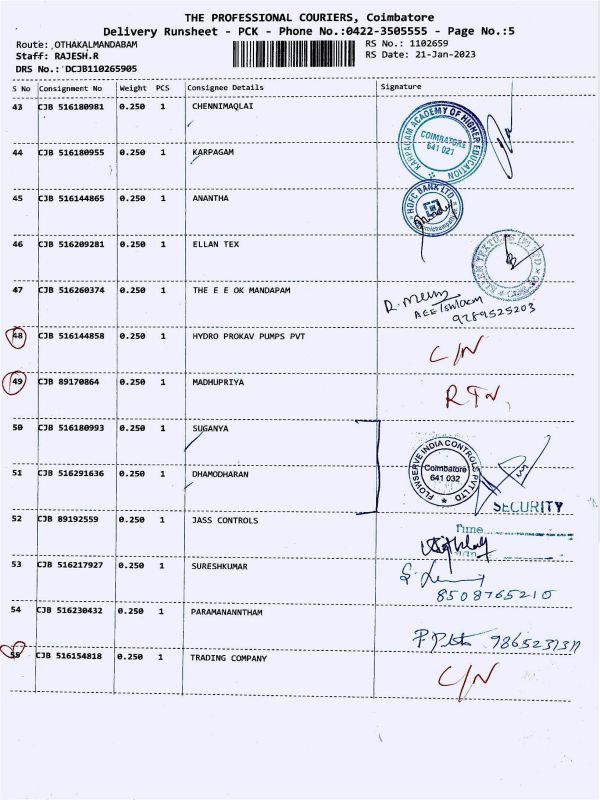 THE PROFESSIONAL COURIERS, Coimbatore
Delivery Runsheet - PCK - Phone No.:0422-3505555 - Page No.:5
Route: OTHAKALMANDABAM RS No.: 1102659
Staff: RAJESH.R RS Date: 21-Jan-2023
DRS No.: DCJB110265905
S No Consignment No Weight PCS Consignee Details Signature
43 CJB 516180981 0.250 1 CHENNIMAQLAI
KARPAGAM ACADEMY OF HIGHER EDUCATION
COIMBATORE
641 021
44 CJB 516180955 0.250 1 KARPAGAM
45 CJB 516144865 0.250 1 ANANTHA
HDFC BANK LTD
46 CJB 516209281 0.250 1 ELLAN TEX
47 CJB 516260374 0.250 1 THE E E OK MANDAPAM
9789525203
48 CJB 516144858 0.250 1 HYDRO PROKAV PUMPS PVT C/N
49 CJB 89170864 0.250 1 MADHUPRIYA RTN
50 CJB 516180993 0.250 1 SUGANYA
FLOWSERVE INDIA CONTROLS PVT LTD
Coimbatore
641 032
51 CJB 516291636 0.250 1 DHAMODHARAN
SECURITY
52 CJB 89192559 0.250 1 JASS CONTROLS
Time
53 CJB 516217927 0.250 1 SURESHKUMAR
8508765210
54 CJB 516230432 0.250 1 PARAMANANNTHAM
55 CJB 516154818 0.250 1 TRADING COMPANY C/N